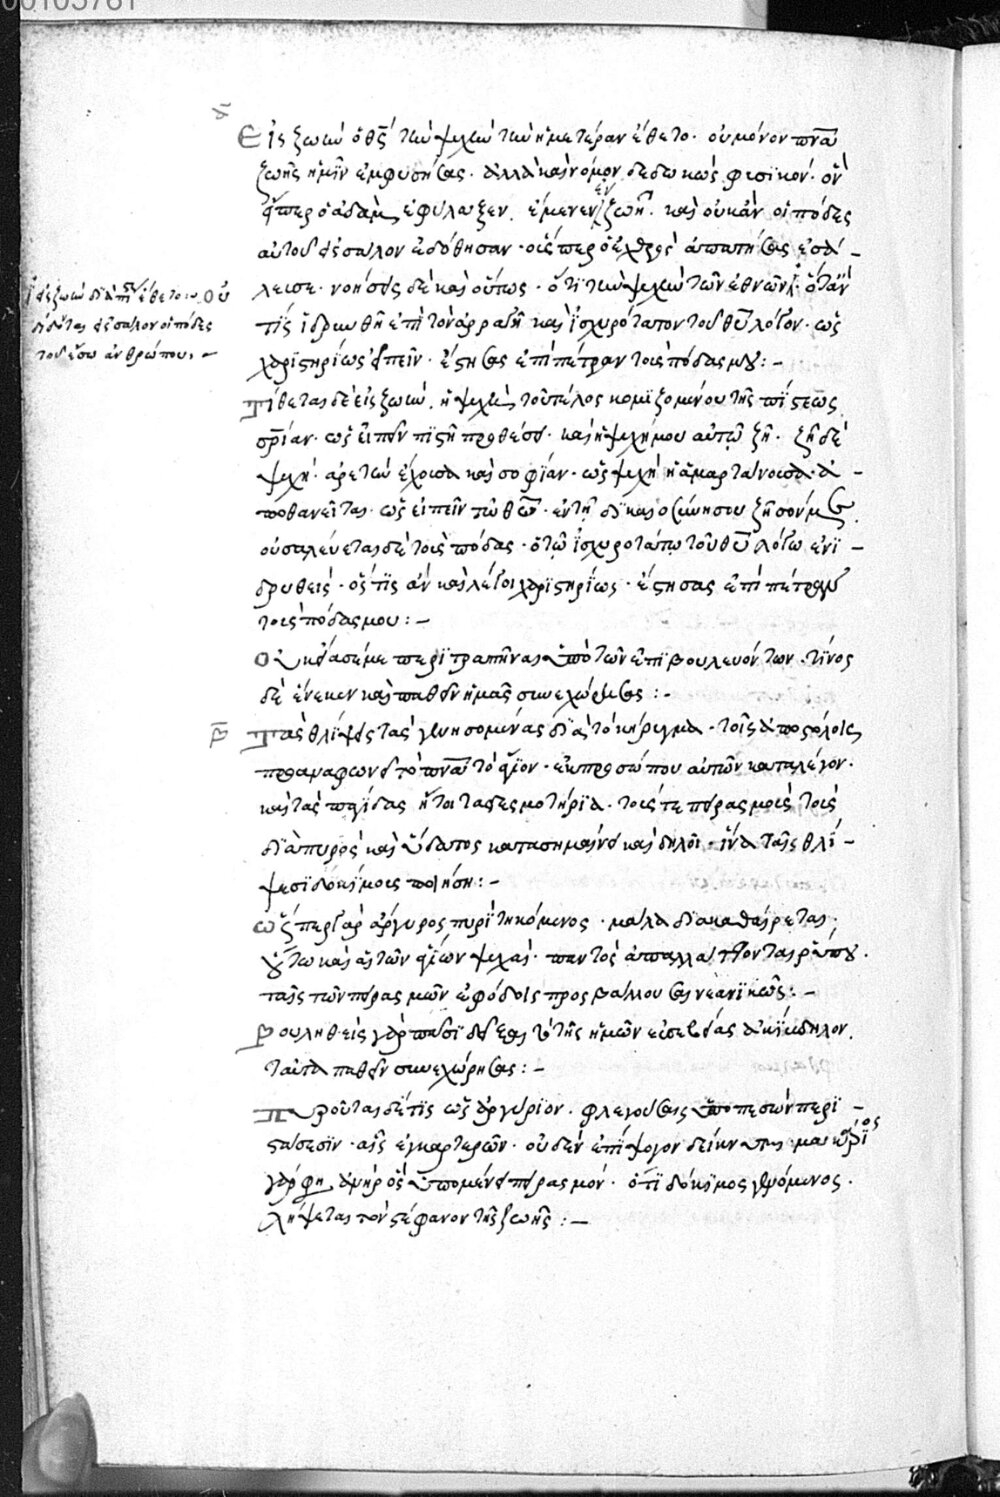 00105761
Εἰς ζωὴν ὁ θς τὴν ψυχὴν τὴν ἡμετέραν ἔθετο· οὐ μόνον πνα
ζωῆς ἡμῖν ἐμφυσήσας· ἀλλὰ καὶ νόμον δεδωκὼς φυσικόν· ὃν
εἴπερ ὁ ἀδὰμ ἐφύλαξεν, ἔμενεν ἐν ζωῇ· καὶ οὐκ ἂν οἱ πόδες
αὐτοῦ εἰς σάλον ἐδόθησαν· οὓς περ ὁ ἐχθρὸς ἀπατήσας ἐσά-
λευσε· νοήσεις δὲ καὶ οὕτως· ὅτι τὴν ψυχὴν τῶν ἐθνῶν ὅταν
τίς ἱδρυνθῆ ἐπὶ τὸν ἀρραγῆ καὶ ἰσχυρότατον τοῦ θυ λόγον· ὡς
χαριστηρίως εἰπεῖν· ἔστησας ἐπὶ πέτραν τοὺς πόδας μου:-
Τίθεται δὲ εἰς ζωὴν, ἡ ψυχὴ τὸ τέλος κομιζομένου τῆς πίστεως
σρίαν· ὡς εἰπεῖν καὶ ἡ ψυχή μου αὐτῷ ζῆ· ζῆ δὲ
ψυχὴ ἀρετὴν ἔχουσα καὶ σοφίαν· ὡς ψυχὴ ἡ ἁμαρτάνουσα ἀ-
ποθανεῖται· ὡς εἰπεῖν τῷ θω· ἐν τῇ δικαιοσύνη σου ζῆσόν με
οὐ σαλεύεται δὲ τοὺς πόδας· ὁ τῷ ἰσχυροτάτω τοῦ θυ λόγω ἐνι-
δρυθεὶς· ὅς τις ἂν καὶ λέγοι χαριστηρίως· ἔστησας ἐπὶ πέτραν
τοὺς πόδας μου:-
Οὐκ εἴασέ με περιτραπῆναι ὑπὸ τῶν ἐπιβουλευόντων· τίνος
δὲ ἕνεκεν καὶ παθεῖν ἡμᾶς συνεχώρησας:-
Τὰς θλίψεις τὰς γενησομένας διὰ τὸ κήρυγμα· τοῖς ἀποστόλοις
προαναφωνεῖ τὸ πνα τὸ ἅγιον· ἐκ προσώπου αὐτῶν καταλέγον·
καὶ τὰς παγίδας ἤτοι τὰ δεσμοτήρια· τούς τε πειρασμοὺς τοὺς
διὰ πυρὸς καὶ ὕδατος κατασημαίνει καὶ δηλοῖ· ἵνα ταῖς θλί-
ψεσι δοκίμους ποιήση:-
Ὥσπερ γὰρ ἄργυρος πυρὶ τηκόμενος· μάλα διακαθαίρεται·
οὕτω καὶ αἱ τῶν ἁγίων ψυχαὶ· παντὸς ἀπαλλάττονται ῥύπου·
ταῖς τῶν πειρασμῶν ἐφόδοις προσβάλλουσαι νεανικῶς:-
Βουληθεὶς γὰρ πᾶσι δεῖξαι τὸ τῆς ἡμῶν εὐσεβείας ἀκίβδηλον,
ταῦτα παθεῖν συνεχώρησας:-
Πυροῦται δέ τις ὡς ἀργύριον· φλεγούσαις ὑποπεσὼν περι-
στάσεσιν· αἷς ἐγκαρτερῶν· οὐδὲν ἐπίψογον δείκνυσι· μακάριος
γάρ φη, ἀνὴρ ὃς ὑπομένει πειρασμόν· ὅτι δόκιμος γενόμενος·
λήψεται τὸν στέφανον τῆς ζωῆς:-
εἰς ζωὴν ἔθετο
εἰς σάλον οἱ πόδες
τοῦ ἔσω ἀνθρώπου:-